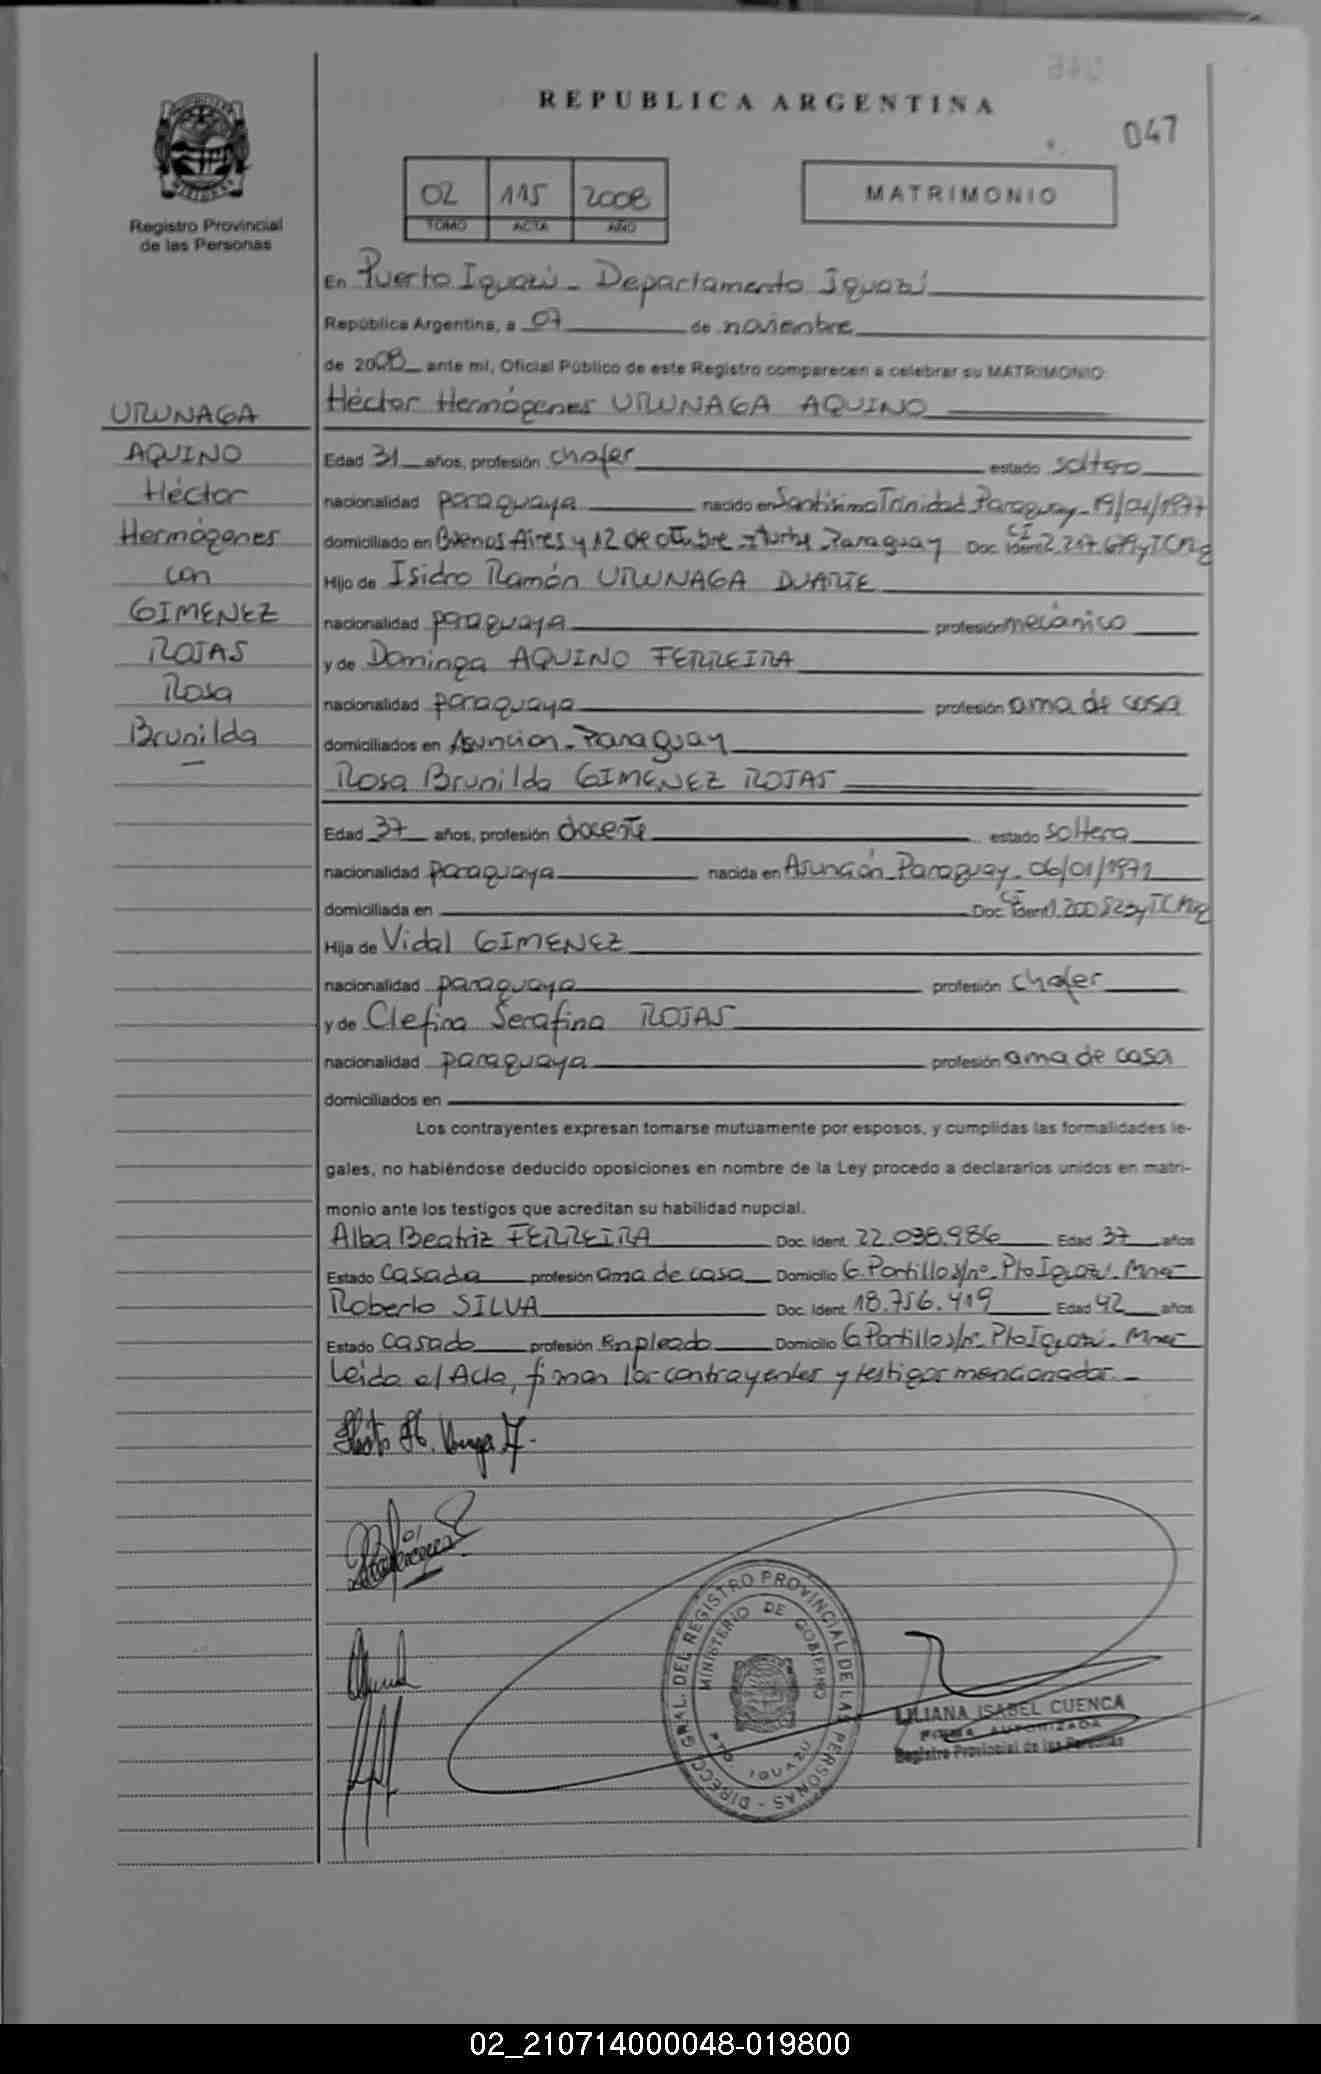 REPUBLICA ARGENTINA
047
Registro Provincial
de las Personas
02 115 2008
TOMO ACTA AÑO
MATRIMONIO
En Puerto Iguazú - Departamento Iguazú
República Argentina, a 07 de noviembre
de 2008 ante mí, Oficial Público de este Registro comparecen a celebrar su MATRIMONIO:
Héctor Hermógenes URUNAGA AQUINO
URUNAGA
AQUINO
Héctor
Hermógenes
con
GIMENEZ
ROJAS
Rosa
Brunilda
Edad 31 años, profesión chofer estado soltero
nacionalidad paraguaya nacido en Santísima Trinidad Paraguay - 19/04/1977
domiciliado en Buenos Aires y 12 de octubre - Iturbe - Paraguay Doc. Ident. CI
Hijo de Isidro Ramón URUNAGA DUARTE
nacionalidad paraguaya profesión mecánico
y de Dominga AQUINO FERREIRA
nacionalidad paraguaya profesión ama de casa
domiciliados en Asunción - Paraguay
Rosa Brunilda GIMENEZ ROJAS
Edad 37 años, profesión docente estado soltera
nacionalidad paraguaya nacida en Asunción - Paraguay - 06/01/1971
domiciliada en Doc. Ident. CI
Hija de Vidal GIMENEZ
nacionalidad paraguaya profesión chofer
y de Clefina Serafina ROJAS
nacionalidad paraguaya profesión ama de casa
domiciliados en
Los contrayentes expresan tomarse mutuamente por esposos, y cumplidas las formalidades le-
gales, no habiéndose deducido oposiciones en nombre de la Ley procedo a declararlos unidos en matri-
monio ante los testigos que acreditan su habilidad nupcial.
Alba Beatriz FERREIRA Doc. Ident. 22.038.986 Edad 37 años
Estado casada profesión ama de casa Domicilio G. Portillo s/nº - Pto Iguazú - Mnes
Roberto SILVA Doc. Ident. 18.756.419 Edad 42 años
Estado casado profesión empleado Domicilio G. Portillo s/nº - Pto Iguazú - Mnes
Leída el Acta, firman los contrayentes y testigos mencionados.-
DIRECC. GRAL. DEL REGISTRO PROVINCIAL DE LAS PERSONAS -
MINISTERIO DE GOBIERNO
PTO. IGUAZU
LILIANA ISABEL CUENCA
FIRMA AUTORIZADA
Registro Provincial de las Personas
02_210714000048-019800